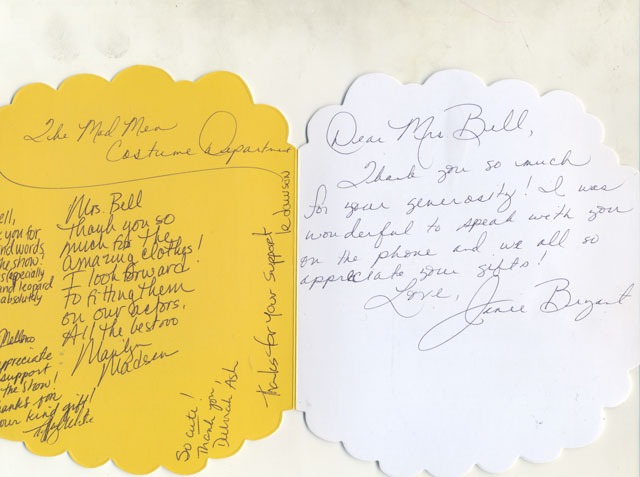 The Mad Men
Costume Department
ell,
k you for
nd words
he show!
especially
and leopard
absolutely
Mrs. Bell
Thank you so
much for the
amazing clothes!
I look forward
to fitting them
on our actors.
All the best
Marilyn
Madsen
ppreciate
support
the show!
hanks for
our kind gift!
So cute!
Thank you,
Deborah Ash
thanks for your support
Dear Mrs Bell,
Thank you so much
for your generosity! I was
wonderful to speak with you
on the phone and we all so
appreciate your gifts!
Love,
Janie Bryant